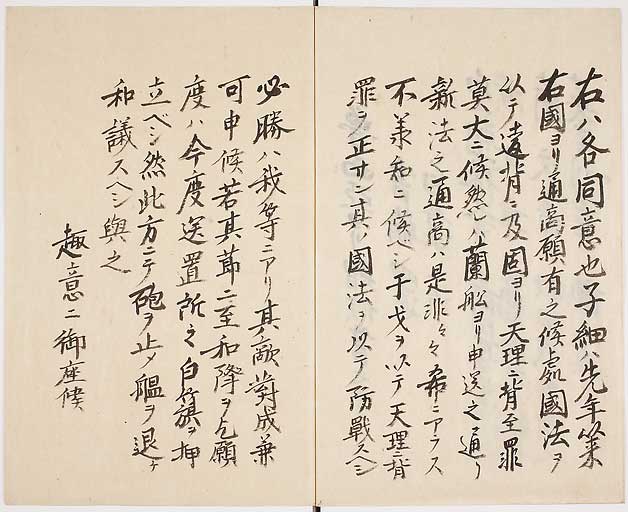 右ハ各同意也子細ハ先年ゟ
右國ヨリ通商願有之候處國法ヲ
以テ違背ニ及固ヨリ天理ニ背至罪
莫大ニ候然ハ蘭船ヨリ申送之通リ
新法之通商ハ是非々々希ニアラス
不美和ニ候ベシ干戈ヲ以テ天理ニ背
罪ヲ正サン其ノ國法ヲ以テノ防戰スヘシ
必勝ハ我等ニアリ其敵對成兼
可申候若其節ニ至和降ヲ乞願
度ハ今度送置所之白籏ヲ押
立ベシ然此方ニテ砲ヲ止メ艦ヲ退テ
和議スヘシ與之
趣意ニ御座候